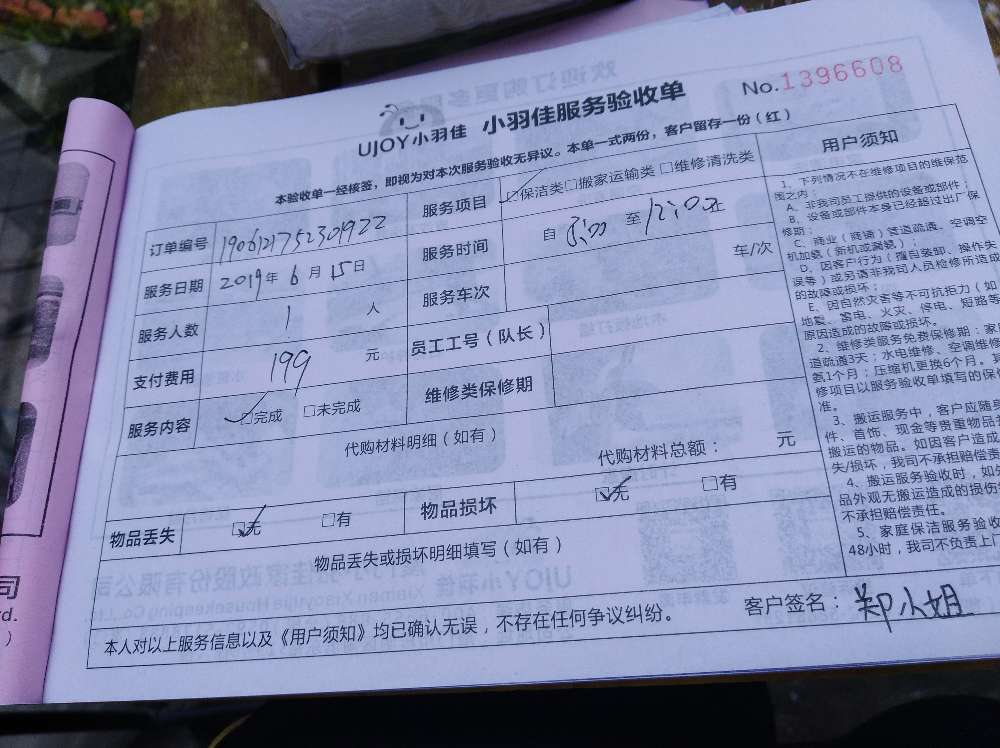 No.1396608
UJOY小羽佳 小羽佳服务验收单
本验收单一经核签，即视为对本次服务验收无异议。本单一式两份，客户留存一份（红）
订单编号 服务项目 ☑保洁类□搬家运输类□维修清洗类
服务日期 2019年6月15日 服务时间 自 至
服务人数 1 人 服务车次 车/次
支付费用 199 元 员工工号（队长）
服务内容 ☑完成 □未完成 维修类保修期
代购材料明细（如有）
代购材料总额： 元
物品丢失 ☑无 □有 物品损坏 ☑无 □有
物品丢失或损坏明细填写（如有）
本人对以上服务信息以及《用户须知》均已确认无误，不存在任何争议纠纷。 客户签名：郑小姐
用户须知
1、下列情况不在维修项目的维保范
围之内：
A、非我司员工提供的设备或部件；
B、设备或部件本身已经超过出厂保
修期；
C、商业（商铺）管道疏通、空调空
机加氨（新机或漏氨）；
D、因客户行为（擅自装卸、操作失
误等）或另请非我司人员检修所造成
的故障或损坏；
E、因自然灾害等不可抗拒力（如
地震、雷电、火灾、停电、短路等
原因造成的故障或损坏。
2、维修类服务免费保修期：家
道疏通3天；水电维修、空调维修
氨1个月；压缩机更换6个月。
修项目以服务验收单填写的保
准。
3、搬运服务中，客户应随身
件、首饰、现金等贵重物品
搬运的物品。如因客户造成
失/损坏，我司不承担赔偿责
4、搬运服务验收时，如
品外观无搬运造成的损伤
不承担赔偿责任。
5、家庭保洁服务验收
48小时，我司不负责上门
司
rd.
）